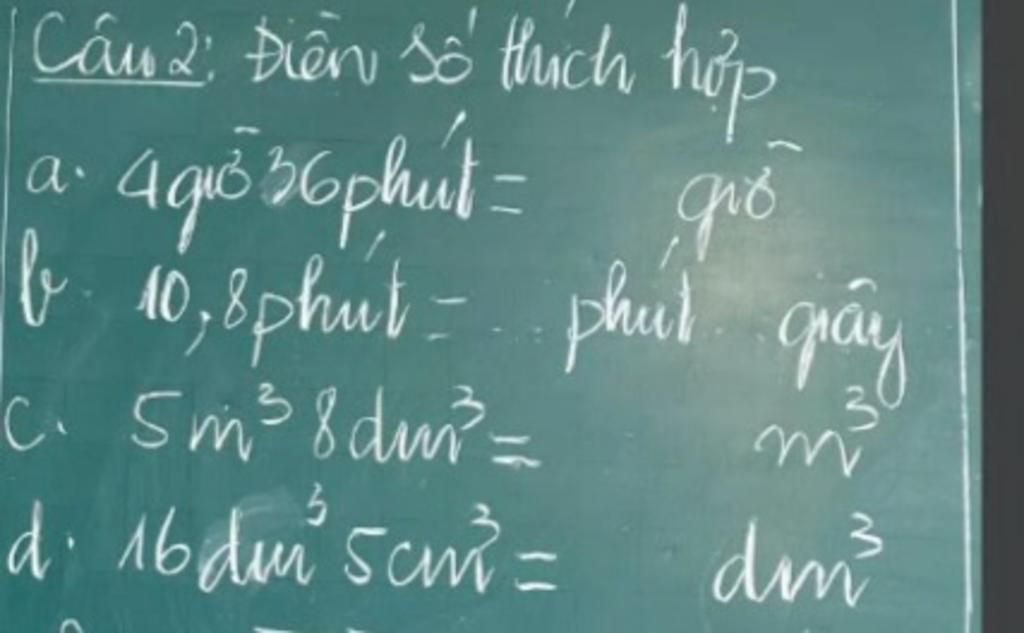 Câu 2: Điền số thích hợp
a. 4 giờ 36 phút = giờ
b. 10,8 phút = ... phút ... giây
c. 5 m³ 8 dm³ = m³
d. 16 dm³ 5 cm³ = dm³